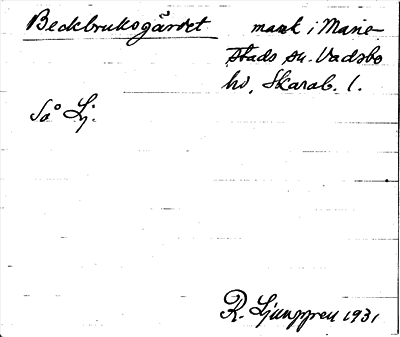 Beckbruksgärdet mark i Marie-
stads sn. Vadsbo
hd, Skarab. l.
så Lj.
R. Ljunggren 1931